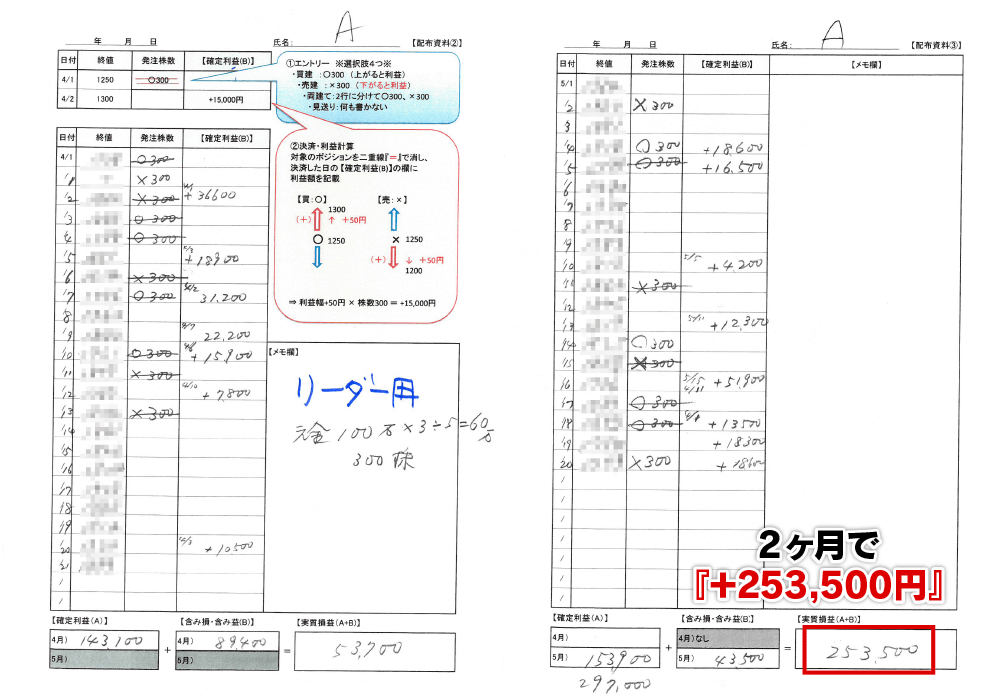 A
年 月 日
氏名:
【配布資料②】
日付 終値 発注株数 【確定利益(B)】
4/1 1250 〇300
4/2 1300 +15,000円
①エントリー ※選択肢4つ※
・買建 :〇300 (上がると利益)
・売建 :×300 (下がると利益)
・両建て:2行に分けて〇300、×300
・見送り:何も書かない
②決済・利益計算
対象のポジションを二重線『=』で消し、
決済した日の【確定利益(B)】の欄に
利益額を記載
【買:〇】 【売:×】
1300
(+) ↑ +50円
〇 1250 × 1250
(+) ↓ +50円
1200
⇒ 利益幅+50円 × 株数300 = +15,000円
日付 終値 発注株数 【確定利益(B)】
4/1 〇300
×300
/2 ×300 +36600
/3 〇300
/4 〇300
/5 +18900
/6 ×300
/7 〇300 31,200
/8
/9 22,200
/10 〇300 +15900
/11 ×300
/12 4/10 +7800
/13 ×300
/14
/15
/16
/17
/18
/19
/20 +10500
/21
/
/
【メモ欄】
リーダー用
元金100万×3÷5=60万
300株
【確定利益(A)】 【含み損・含み益(B)】 【実質損益(A+B)】
4月) 143,100 + 4月) 89,400 = 53,700
5月) 5月)
A
年 月 日
氏名:
【配布資料③】
日付 終値 発注株数 【確定利益(B)】 【メモ欄】
5/1
/2 ×300
/3
/4 〇300 +18,600
/5 〇300 +16,500
/6
/7
/8
/9
/10 5/5 +4200
/11 ×300
/12
/13 5/11 +12,300
/14 〇300
/15 ×300
/16 5/15 +51900
/17 〇300
/18 〇300 +13500
/19 +18300
/20 ×300 +18600
/
/
/
/
/
/
/
2ヶ月で
『+253,500円』
【確定利益(A)】 【含み損・含み益(B)】 【実質損益(A+B)】
4月) + 4月)なし = 253,500
5月) 153,900 5月) 43,500
297,000